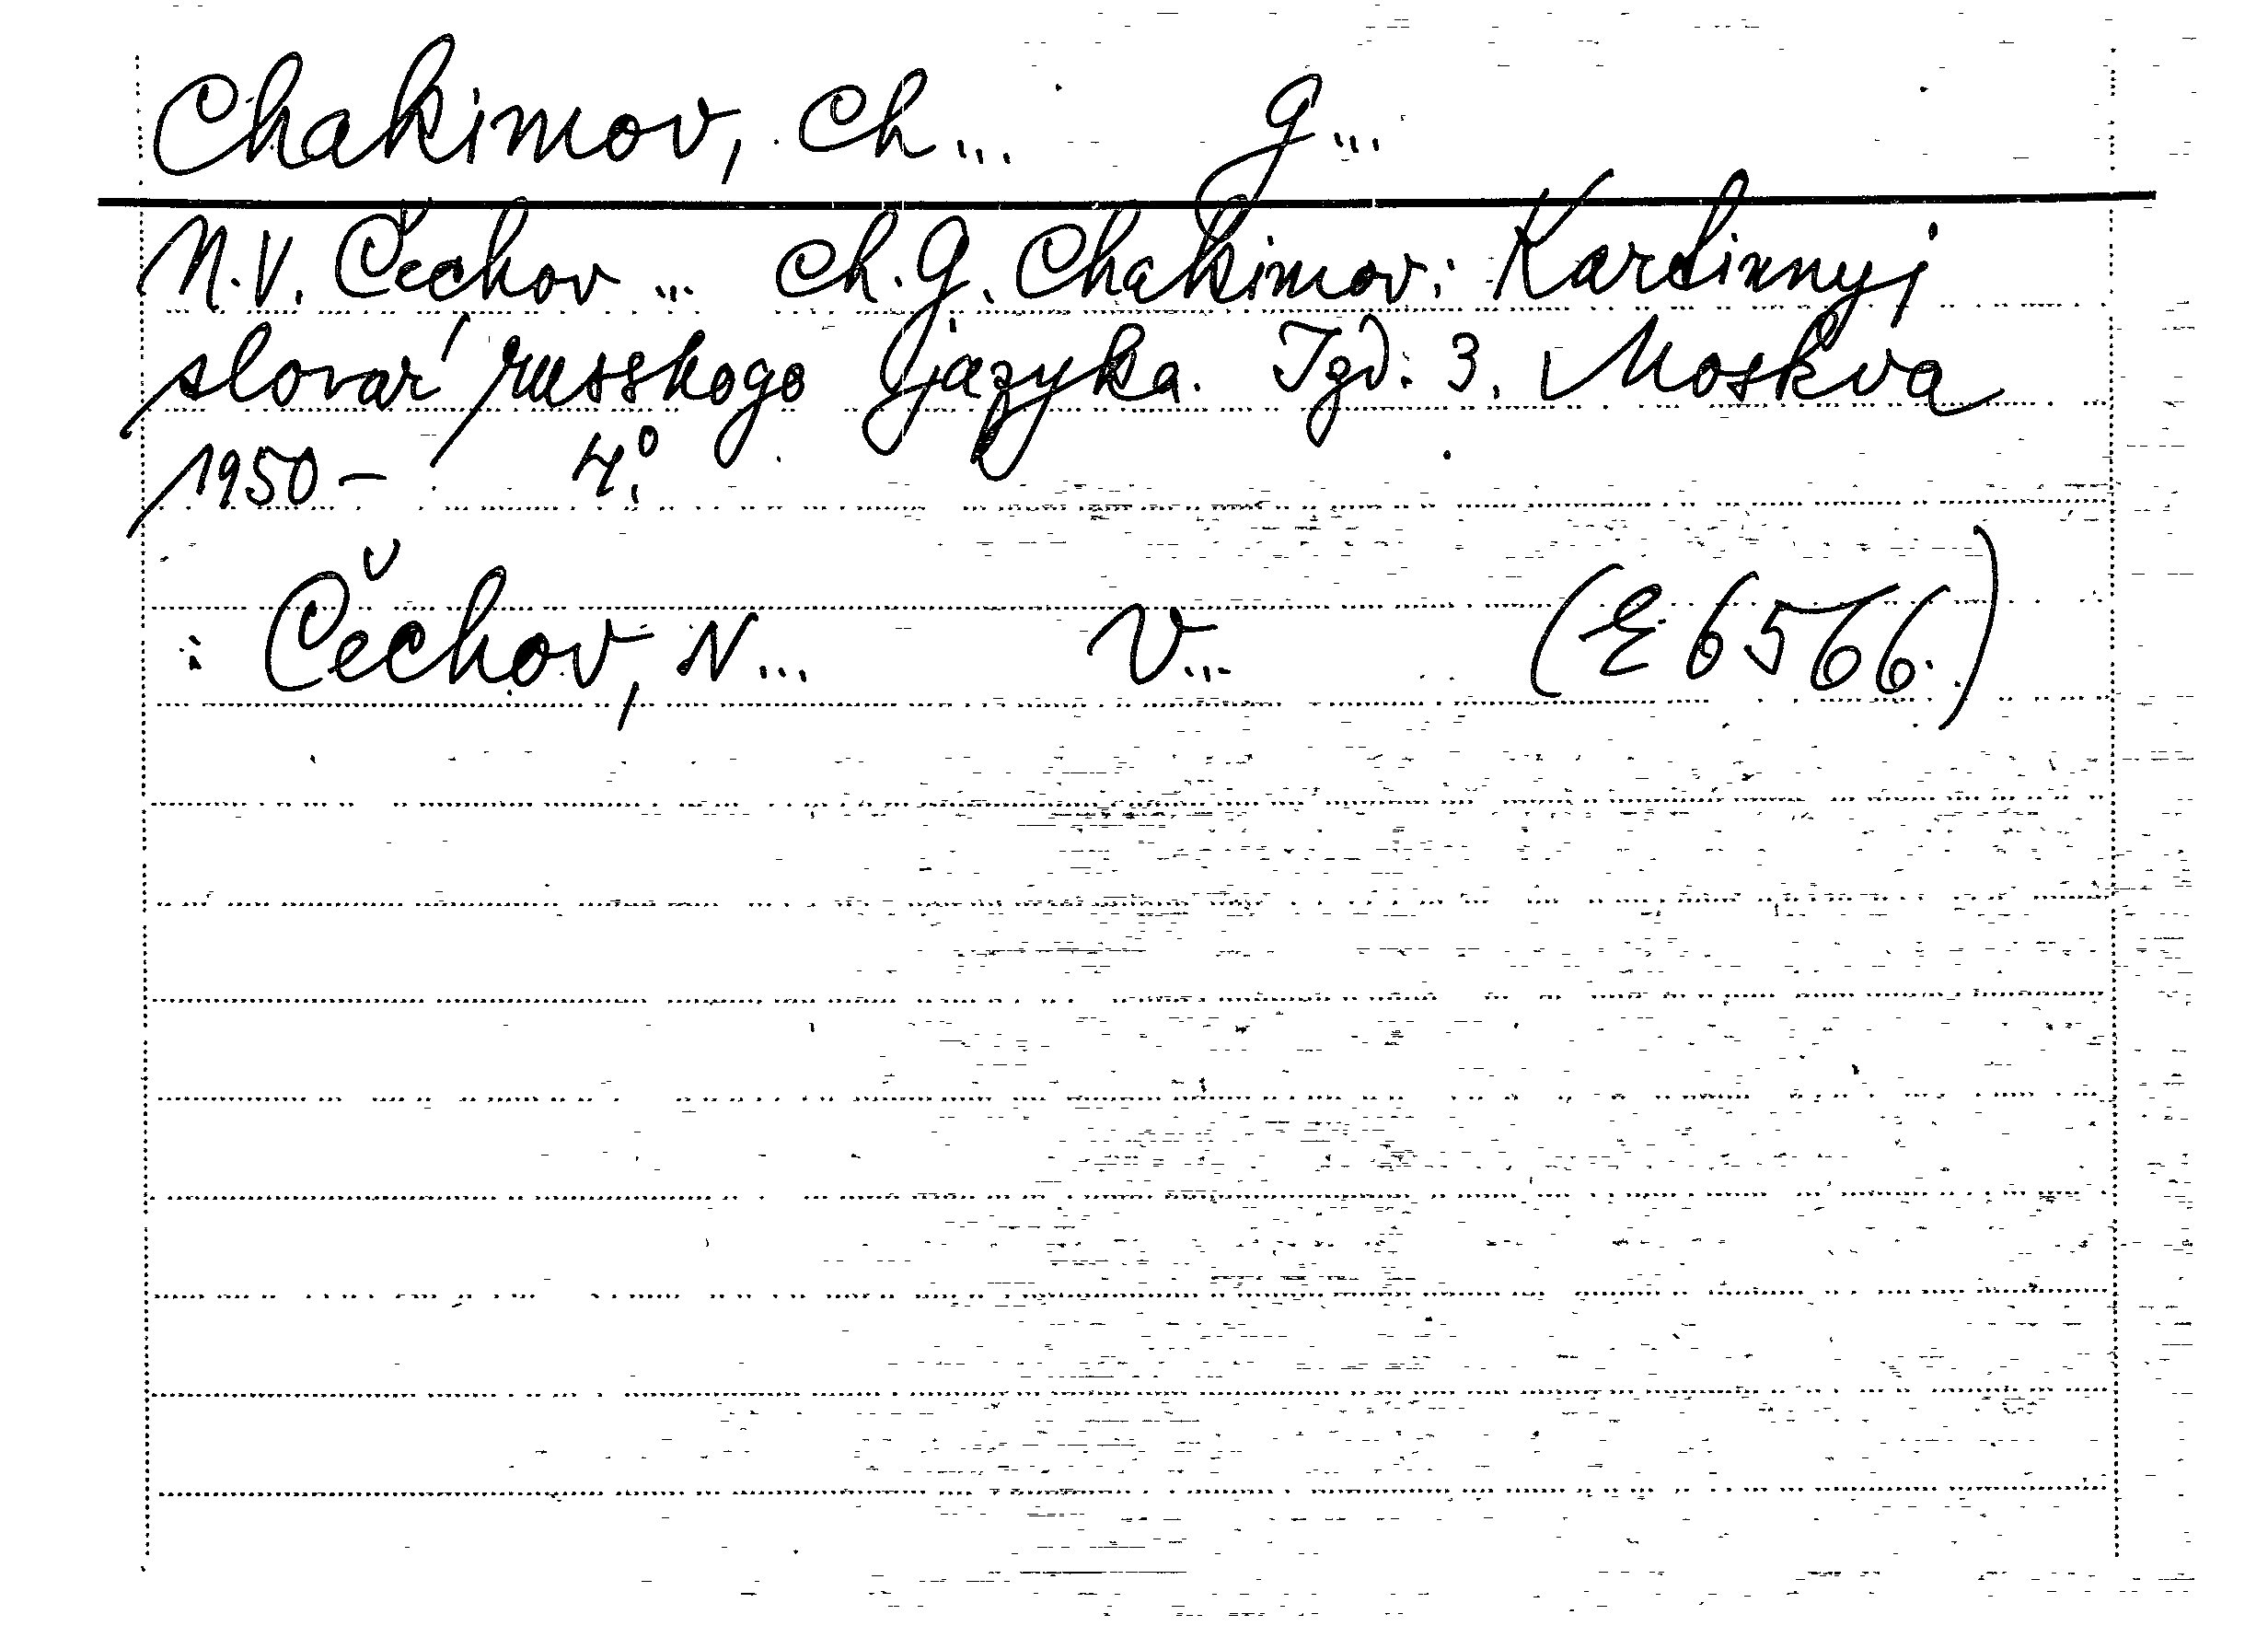 Chakimov, Ch... G...
N.V. Čechov ... Ch.G. Chakimov: Kartinnyj
slovar' russkogo jazyka. Izd: 3. Moskva
1950- 4°.
: Čechov, N... V... (E 6566.)